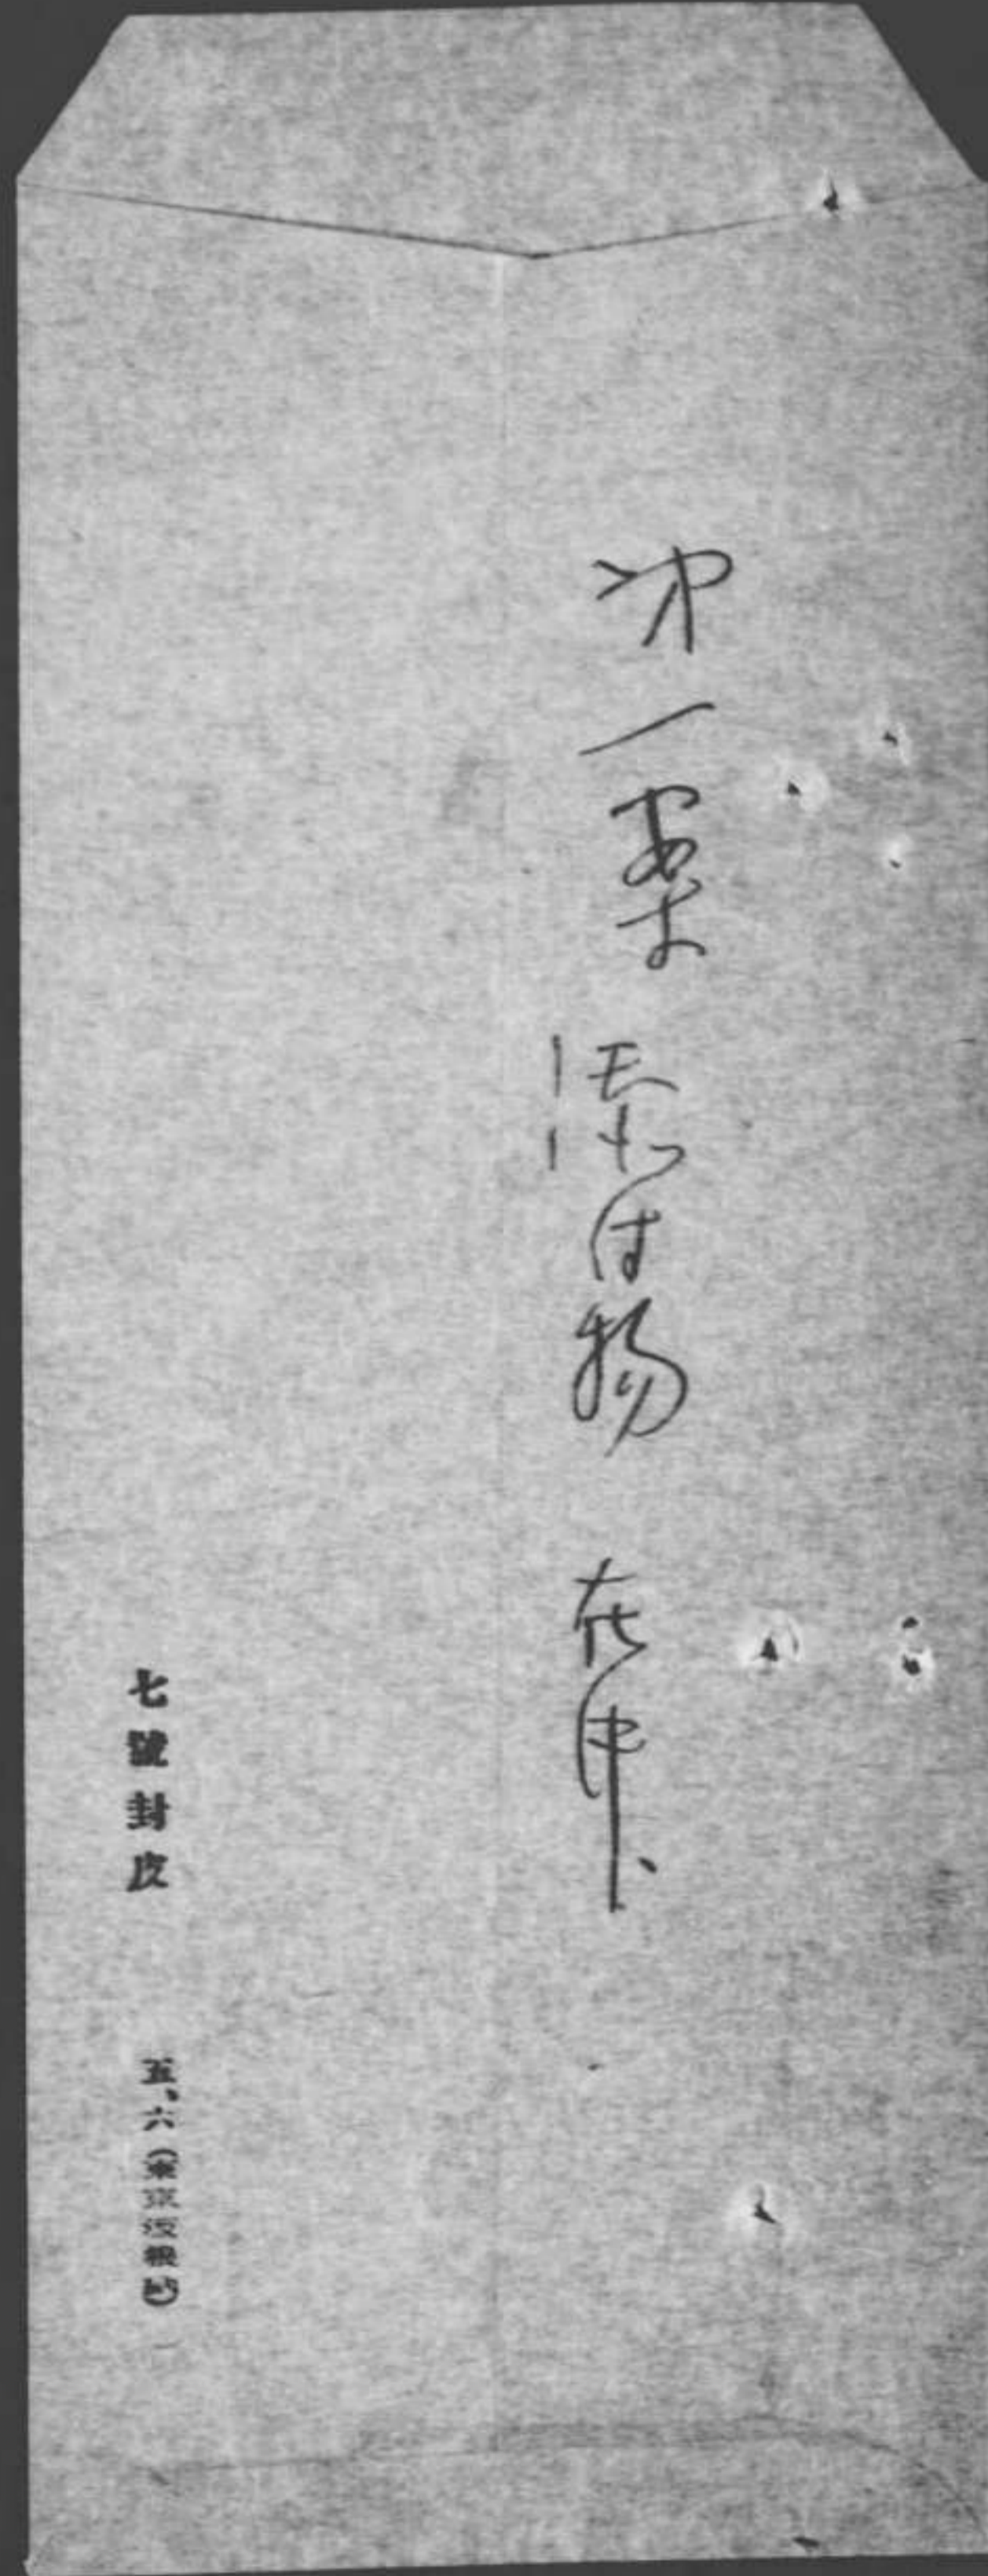 第一案添付物 在中、
七號封皮 五、六(東京